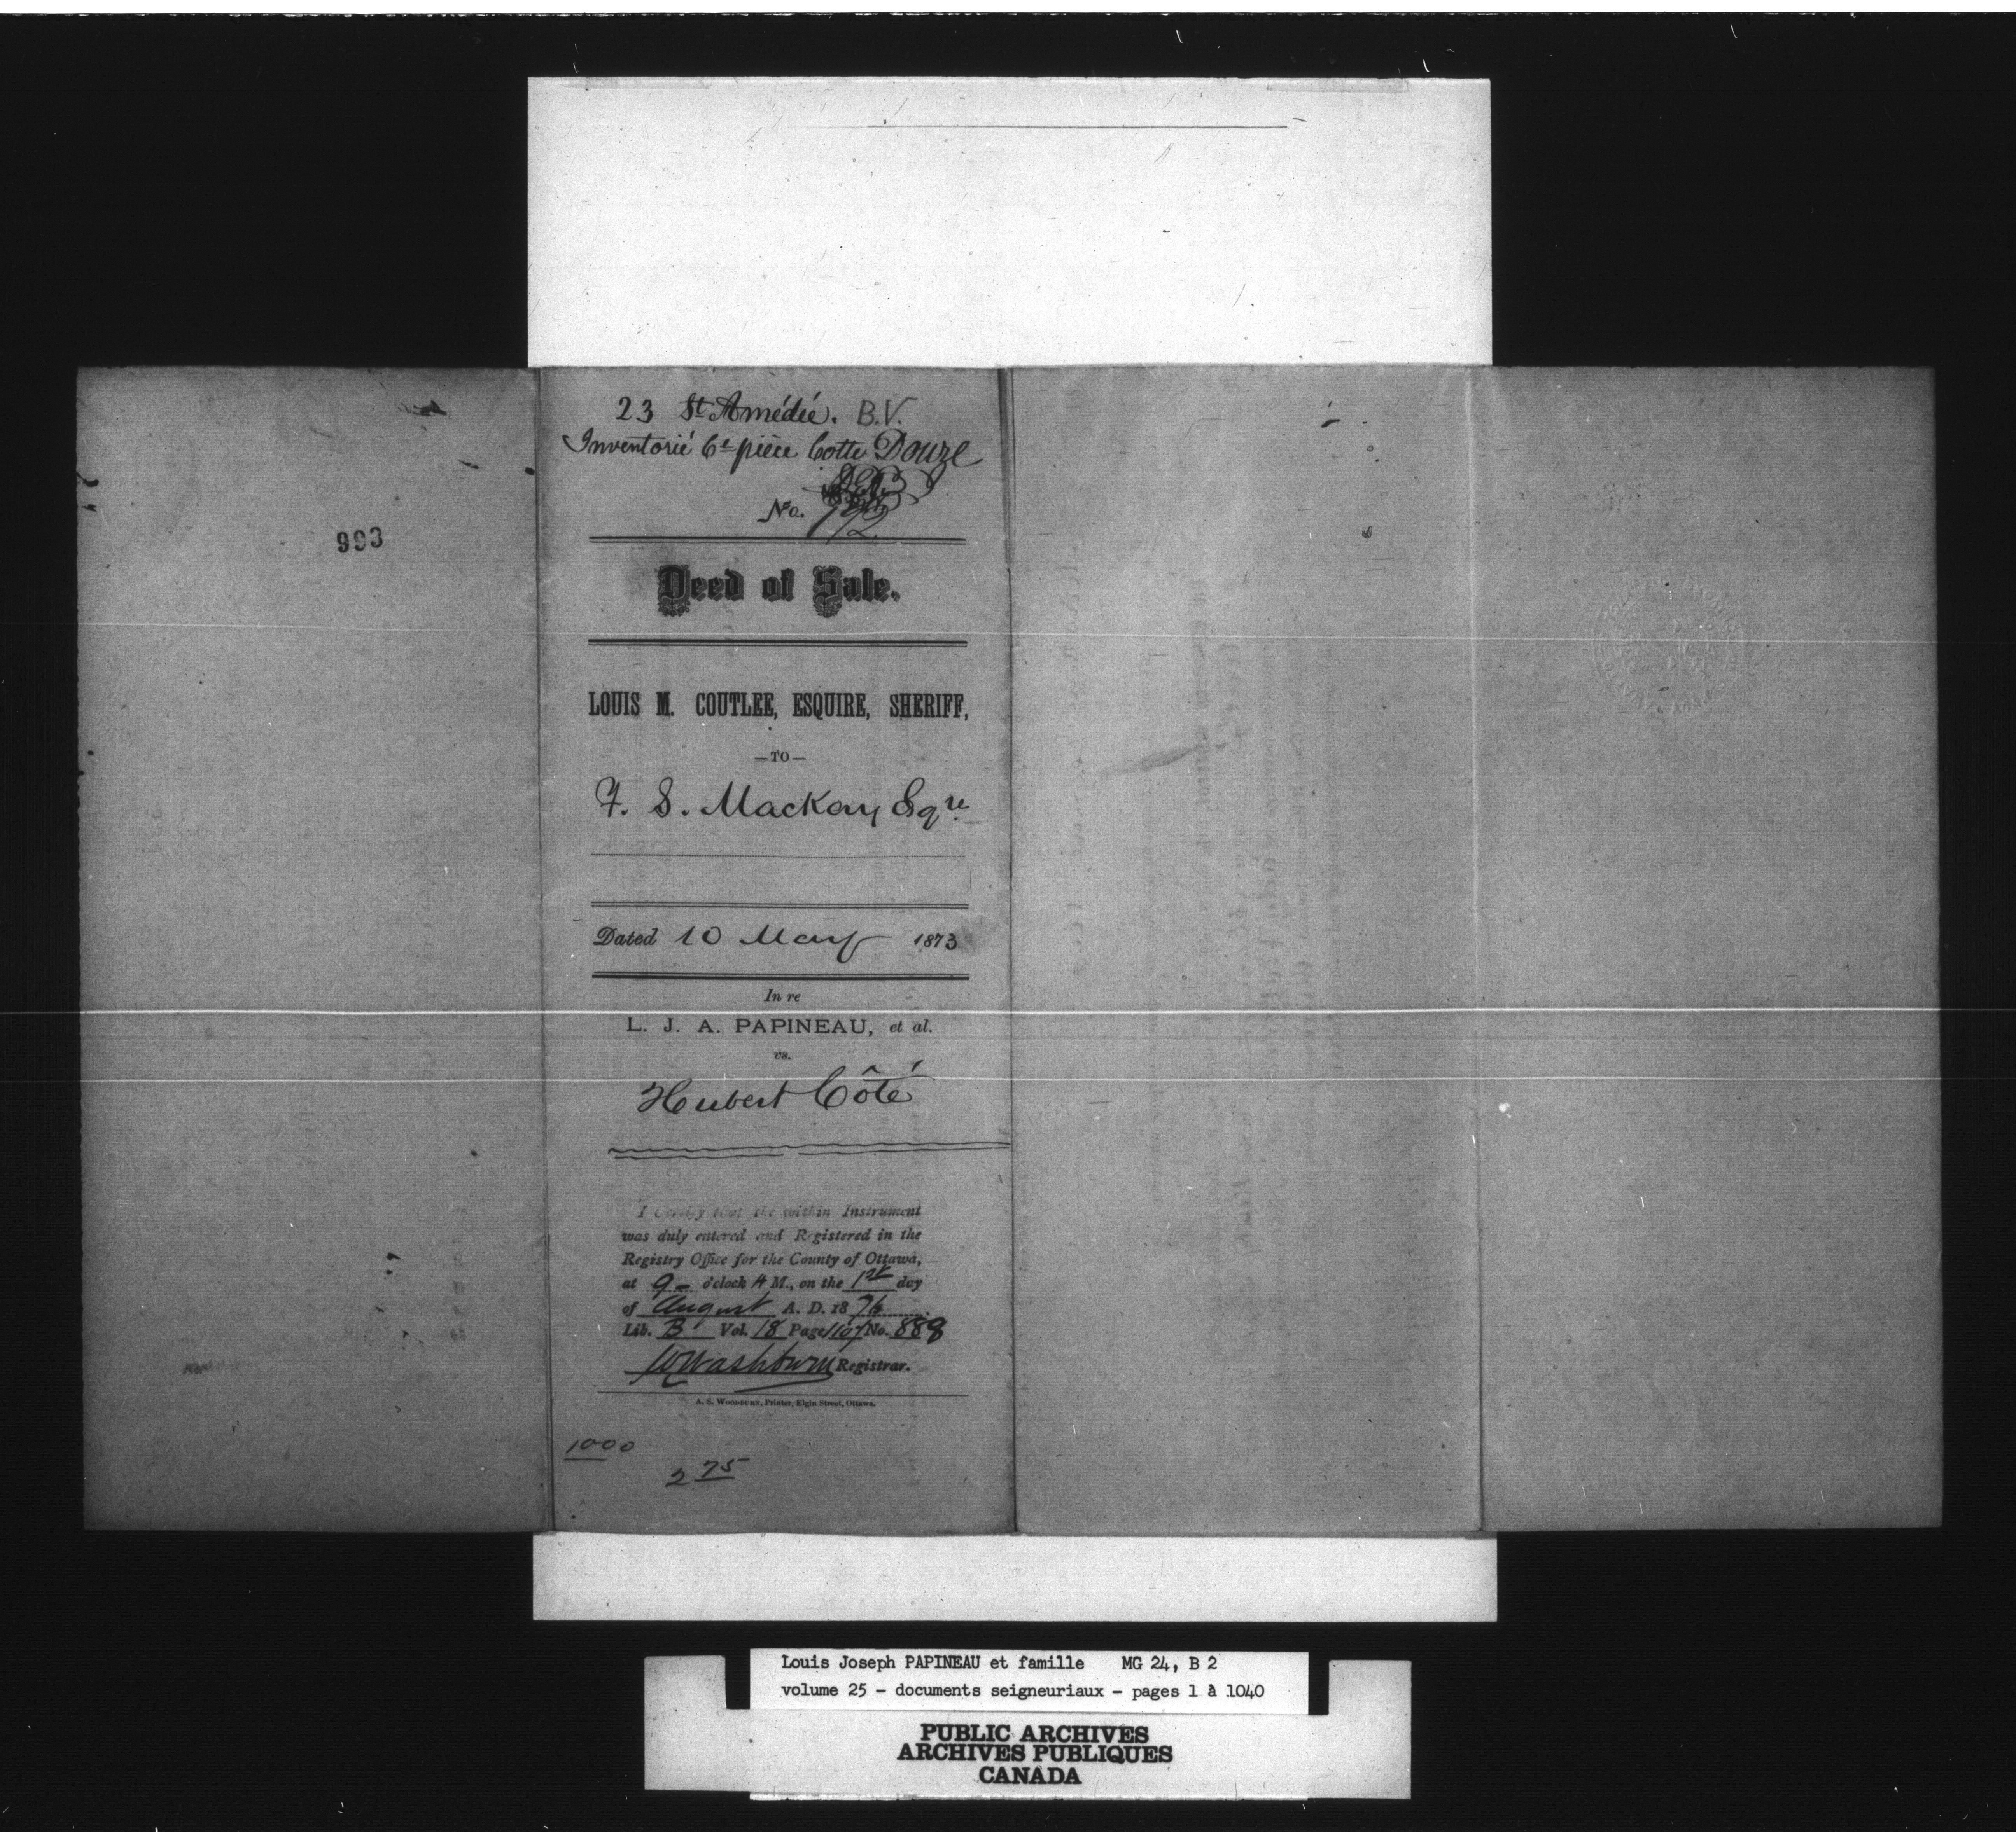 993
23 St Amédée. B.V.
Inventorié 6e pièce Cotte Douze
No.
Deed of Sale.
LOUIS M. COUTLEE, ESQUIRE, SHERIFF,
—TO—
F. S. Mackay Esqre
Dated 10 May 1873
In re
L. J. A. PAPINEAU, et al.
vs.
Hubert Côté
I Certify that the within Instrument
was duly entered and Registered in the
Registry Office for the County of Ottawa,
at 9 — o'clock A M., on the 1st day
of August A. D. 1876
Lib. B Vol. 18 Page No. 888
WWashburn Registrar.
A. S. WOODBURN, Printer, Elgin Street, Ottawa.
1000
2 75
Louis Joseph PAPINEAU et famille MG 24, B 2
volume 25 — documents seigneuriaux — pages 1 à 1040
PUBLIC ARCHIVES
ARCHIVES PUBLIQUES
CANADA